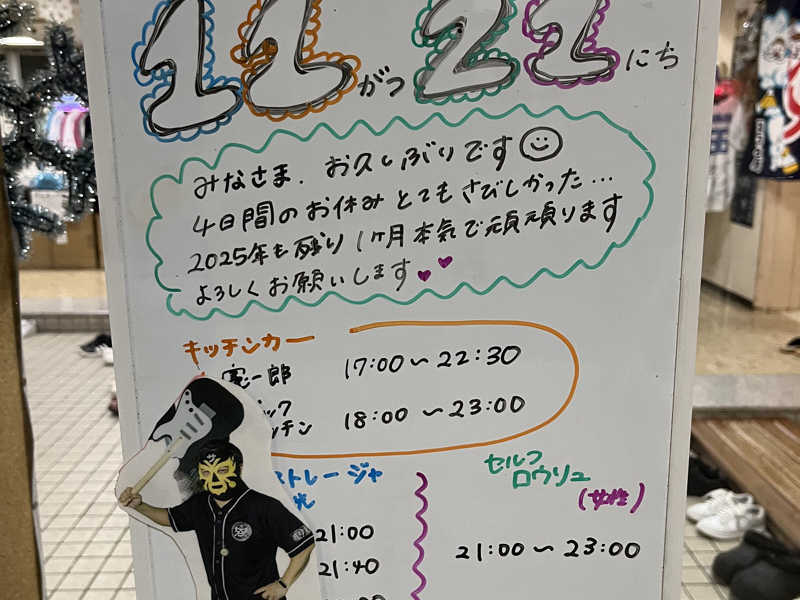 11がつ21にち
みなさま、お久しぶりです
4日間のお休みとてもさびしかった...
2025年も残り1ヶ月本気で頑頑ります
よろしくお願いします
キッチンカー
寛一郎 17:00～22:30
ック
ッチン 18:00～23:00
ストレージャ
光
21:00
21:40
セルフ
ロウリュ
(女性)
21:00～23:00